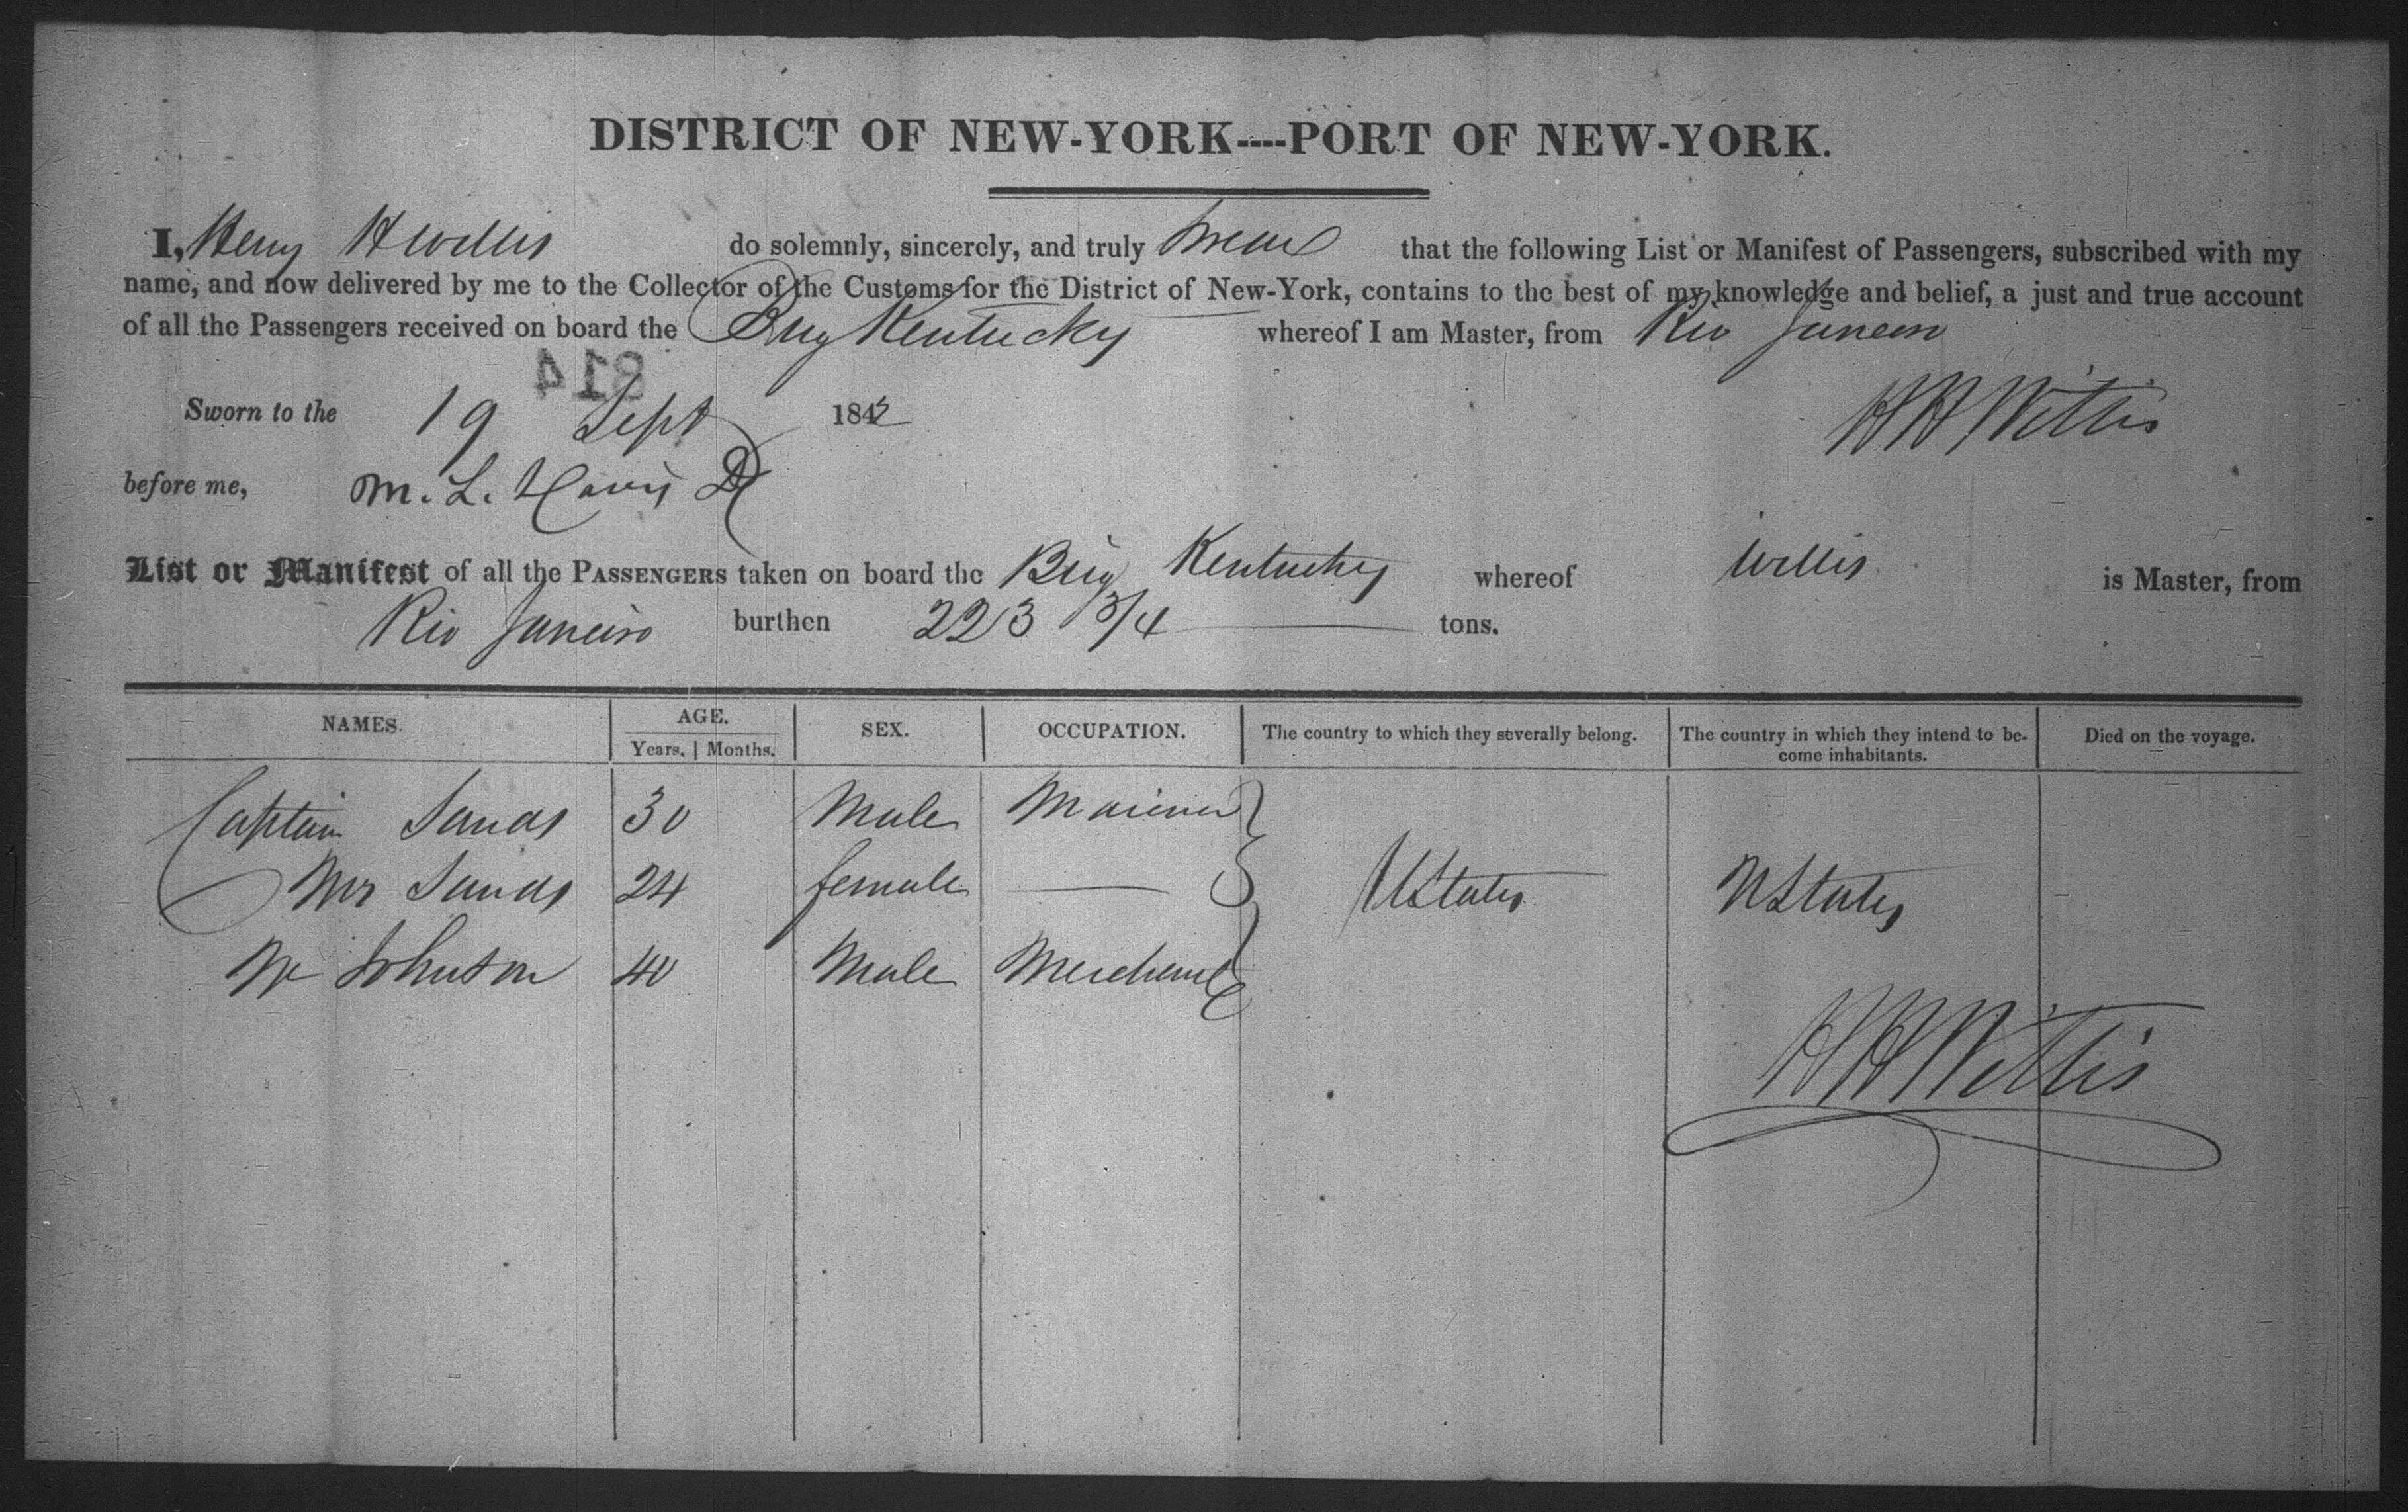 DISTRICT OF NEW-YORK----PORT OF NEW-YORK.
I, Henry H Willis do solemnly, sincerely, and truly swear that the following List or Manifest of Passengers, subscribed with my
name, and now delivered by me to the Collector of the Customs for the District of New-York, contains to the best of my knowledge and belief, a just and true account
of all the Passengers received on board the Brig Kentucky whereof I am Master, from Rio Janeiro
814
Sworn to the 19 Sept 1842
H H Willis
before me, M. L. Davis
List or Manifest of all the PASSENGERS taken on board the Brig Kentucky whereof Willis is Master, from
Rio Janeiro burthen 223 3/4 tons.
NAMES. AGE. SEX. OCCUPATION. The country to which they severally belong. The country in which they intend to be- Died on the voyage.
Years. Months. come inhabitants.
Captain Sands 30 Male Mariner
Mrs Sands 24 female — UStates UStates
Mr Johnson 40 Male Merchant
H H Willis